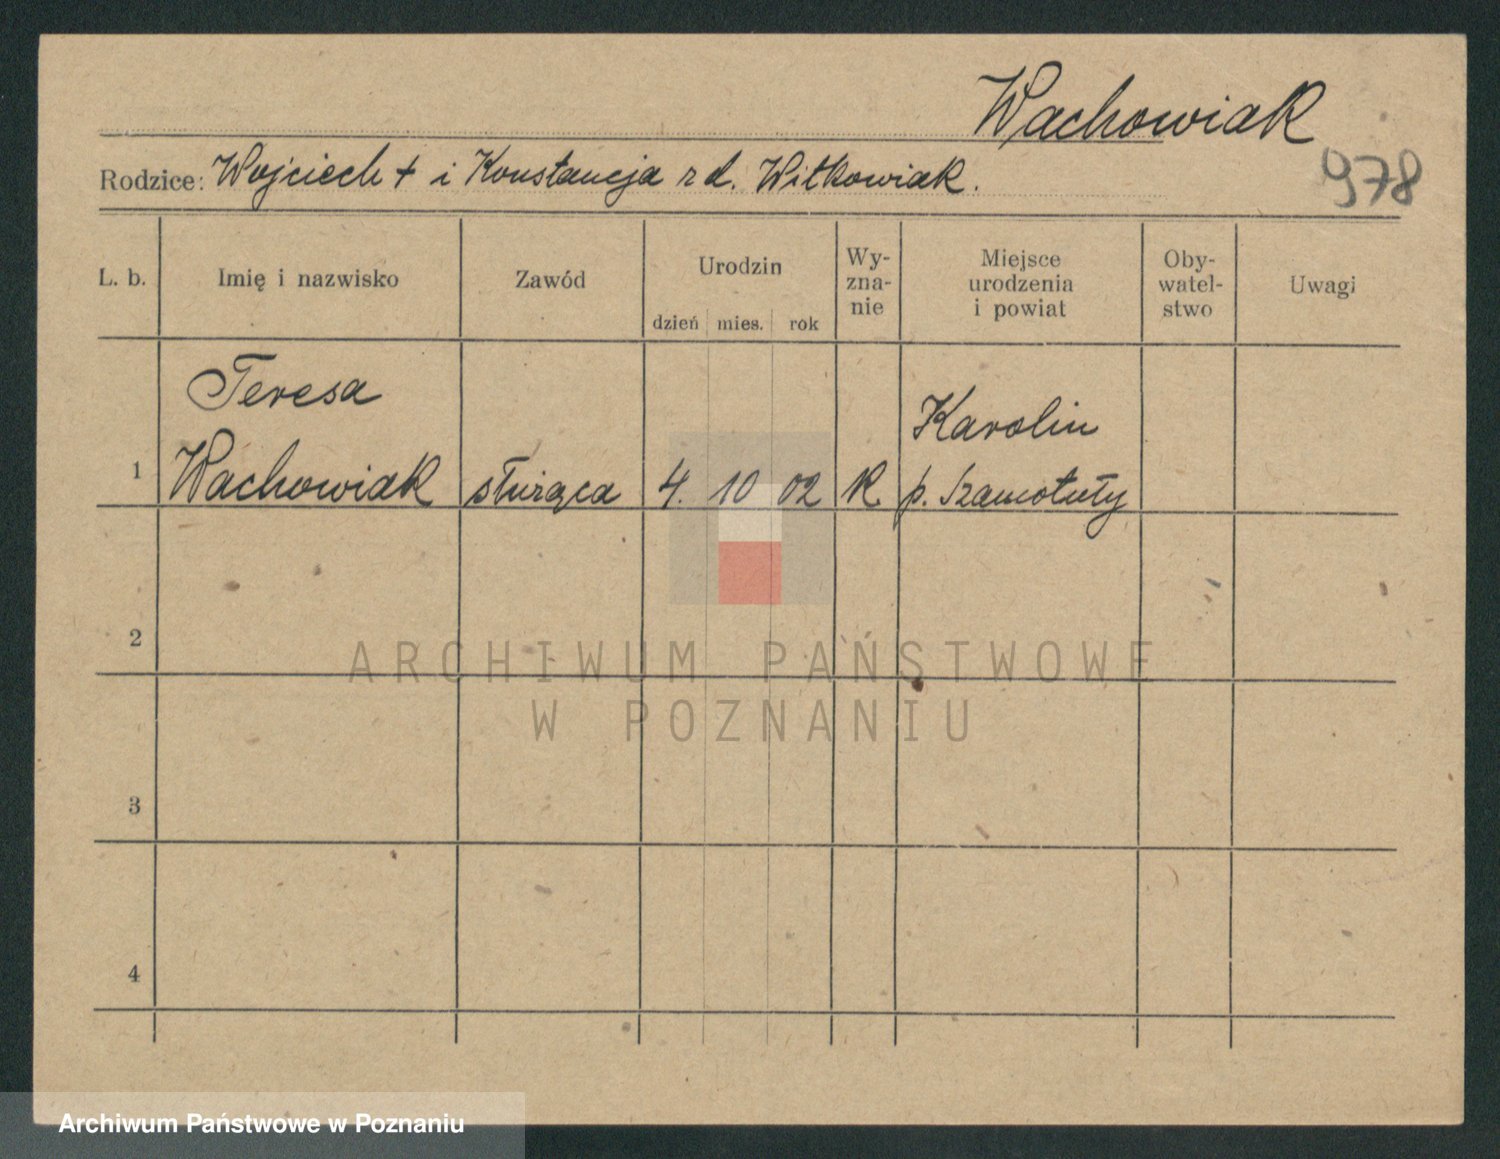 Wachowiak
Rodzice: Wojciech + i Konstancja z d. Witkowiak.
978
L. b. Imię i nazwisko Zawód Urodzin dzień mies. rok Wy-zna-nie Miejsce urodzenia i powiat Oby-watel-stwo Uwagi
Teresa
Karolin
1 Wachowiak służąca 4. 10 02 R. p. Szamotuły
2
ARCHIWUM PAŃSTWOWE
W POZNANIU
3
4
Archiwum Państwowe w Poznaniu